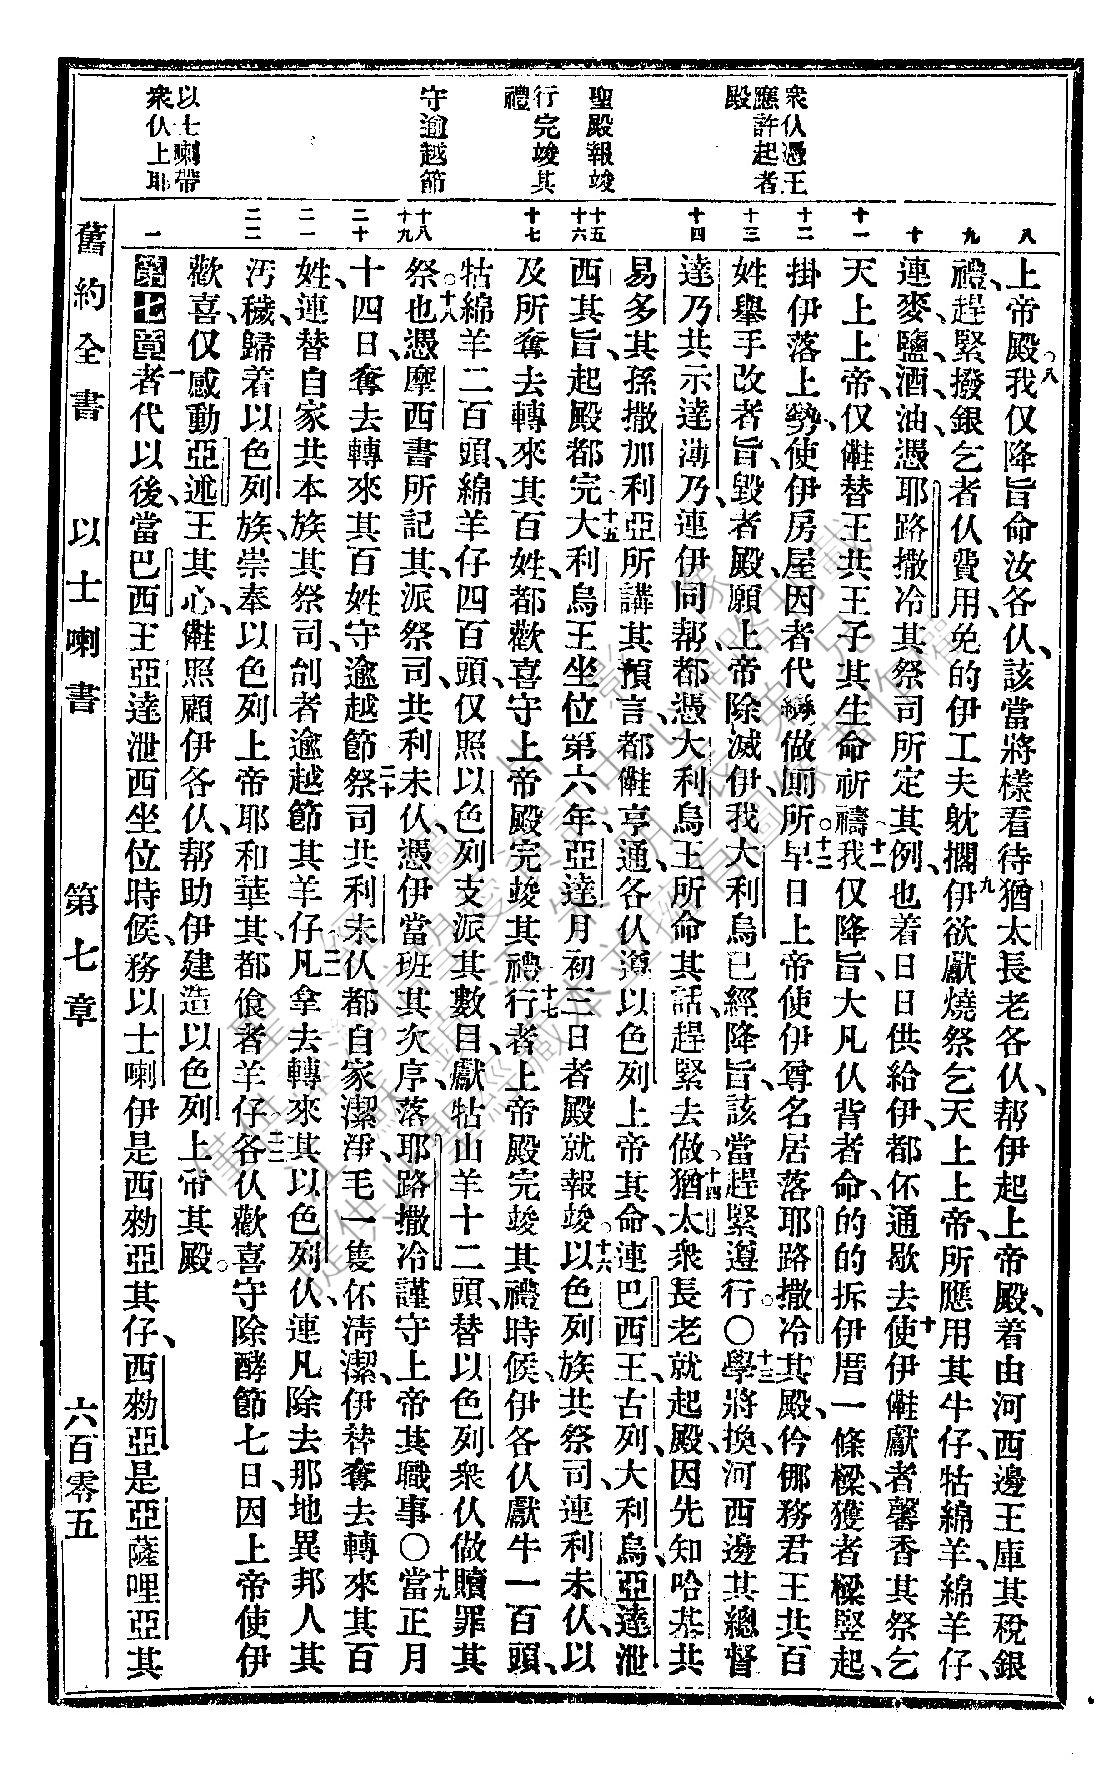 衆仈憑王
應許起者
殿
聖殿報竣
行完竣其
禮
守逾越節
以士喇帶
衆仈上耶
八
九
十
十一
十二
十三
十四
十五
十六
十七
十八
十九
二十
二一
二二
一
上帝殿。八我仅降旨命汝各仈、該當將樣看待猶太長老各仈、帮伊起上帝殿、着由河西邊王庫其稅銀
禮、趕緊撥銀乞者仈費用、免的伊工夫躭擱。九伊欲獻燒祭乞天上上帝、所應用其牛仔、牯綿羊、綿羊仔、
連麥、鹽、酒、油、憑耶路撒冷其祭司所定其例也着日日供給伊、都伓通歇去。十使伊礶獻者馨香其祭乞
天上上帝、仅礶替王共王子其生命祈禱。十一我仅降旨、大凡仈背者命的的拆伊厝一條樑、獲者樑竪起、
掛伊落上勢、使伊房屋因者代變做厠所。十二早日上帝使伊尊名居落耶路撒冷其殿、伶㑚務君王共百
姓、舉手改者旨、毀者殿、願上帝除滅伊、我大利烏已經降旨、該當趕緊遵行。〇十三學將換、河西邊其總督
達乃共示達薄乃、連伊同帮、都憑大利烏王所命其話、趕緊去做。十四猶太衆長老就起殿、因先知哈基共
易多其孫撒加利亞所講其預言、都礶亨通、各仈遵以色列上帝其命、連巴西王古列、大利烏、亞達泄
西其旨、起殿都完。十五大利烏王坐位第六年、亞達月初三日者殿就報竣。十六以色列族共祭司、連利未仈、以
及所奪去轉來其百姓、都歡喜守上帝殿完竣其禮。十七行者上帝殿完竣其禮時候、伊各仈獻牛一百頭、
牯綿羊二百頭、綿羊仔四百頭、仅照以色列支派其數目、獻牯山羊十二頭、替以色列衆仈做贖罪其
祭也。十八憑摩西書所記其、派祭司共利未仈、憑伊當班其次序、落耶路撒冷謹守上帝其職事。〇十九當正月
十四日、奪去轉來其百姓、守逾越節。二十祭司共利未仈都自家潔淨、毛一隻伓淸潔、伊替奪去轉來其百
姓、連替自家共本族其祭司、刣者逾越節其羊仔。二一凡拿去轉來其以色列仈、連凡除去那地異邦人其
汚穢、歸着以色列族、崇奉以色列上帝耶和華其、都食者羊仔。二二各仈歡喜守除酵節七日、因上帝使伊
歡喜、仅感動亞述王其心、礶照顧伊各仈、帮助伊建造以色列上帝其殿。
第七章一者代以後、當巴西王亞達泄西坐位時候、務以士喇、伊是西勑亞其仔、西勑亞是亞薩哩亞其
舊約全書 以士喇書 第七章 六百零五